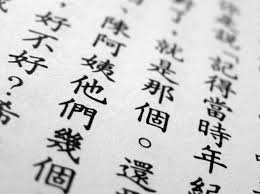 說「記得當時年紀
了，就是那個。還
，陳阿姨他們幾個
，好不好？希